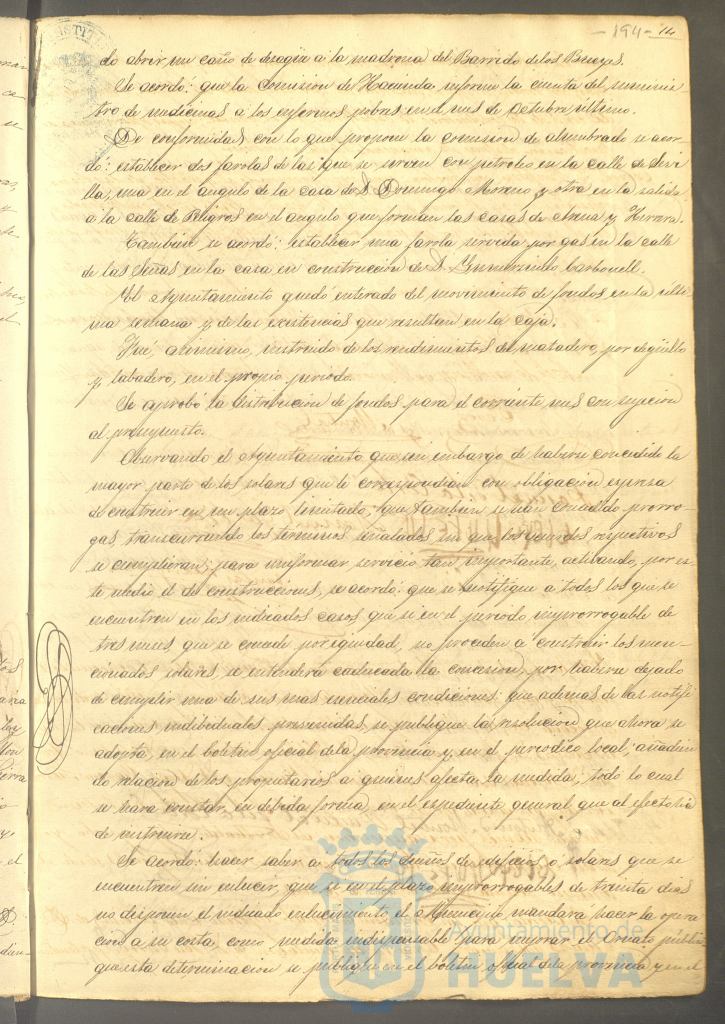 - 194 - 14
do abrir un caño de desagüe a la madrona del Barrido de los
Se acordó: que la Comision de Hacienda informe la cuenta del suminis-
tro de medicinas a los enfermos pobres en el mes de Octubre ultimo.
De conformidad con lo que propone la comision de alumbrado se acor-
dó: establecer dos farolas de las que se sirven con petroleo en la calle de Sevi-
lla, una en el angulo de la casa de D. Domingo Moreno y otra en la salida
a la calle de Peligros en el angulo que forman las casas de Arena y Herrera.
Tambien se acordó: establecer una farola servida por gas en la calle
de las Señas en la casa en construccion de D. Gumersindo Carbonell.
El Ayuntamiento quedó enterado del movimiento de fondos en la ulti-
ma semana y de las existencias que resultan en la Caja.
Fué, asimismo, instruido de los rendimientos del matadero, por degüello
y labadero, en el propio periodo.
Se aprobó la distribucion de fondos para el corriente mes con sujecion
al presupuesto.
Observando el Ayuntamiento que sin embargo de haberse concedido la
mayor parte de los solares que le correspondian con obligacion espresa
de construir en un plazo limitado; que tambien se han concedido prorro-
gas, transcurriendo los terminos señalados sin que los acuerdos respectivos
se cumplieran; para uniformar servicio tan importante, activando, por es-
te medio el de construcciones, se acordó: que se notifique a todos los que se
encuentren en los indicados casos que si en el periodo improrrogable de
tres meses que se concede por equidad, no proceden a construir los men-
cionados solares, se entenderá caducada la concesion, por haberse dejado
de cumplir una de sus mas esenciales condiciones: que ademas de las notifi-
caciones indibiduales prevenidas, se publique la resolucion que ahora se
adopta, en el boletin oficial de la provincia y en el periodico local, añadien-
do relacion de los propietarios a quienes afecta la medida; todo lo cual
se hara constar, en debida forma, en el espediente general que al efecto ha
de instruirse.
Se acordó: hacer saber a todos los dueños de edificios ó solares que se
encuentren sin enlucir, que si en el plazo improrrogables de treinta dias
no disponen el indicado enlucimiento, el Municipio mandará hacer la opera-
cion a su costa, como medida indispensable para mejorar el Ornato público
que esta determinacion se publique en el boletin oficial de la provincia y en el
Ayuntamiento de
HUELVA